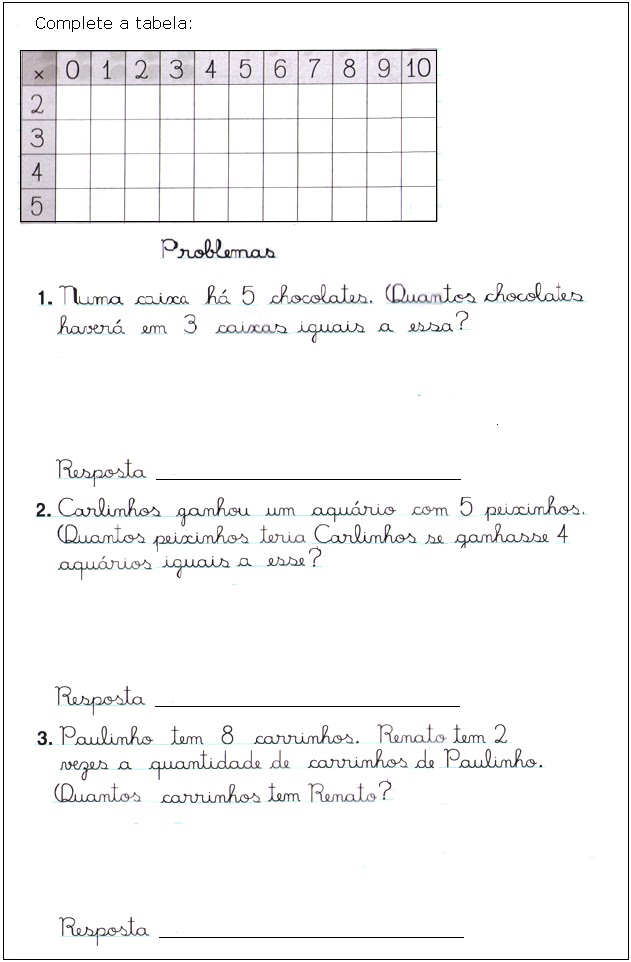 Complete a tabela:
× 0 1 2 3 4 5 6 7 8 9 10
2
3
4
5
Problemas
1. Numa caixa há 5 chocolates. Quantos chocolates
haverá em 3 caixas iguais a essa?
Resposta
2. Carlinhos ganhou um aquário com 5 peixinhos.
Quantos peixinhos teria Carlinhos se ganhasse 4
aquários iguais a esse?
Resposta
3. Paulinho tem 8 carrinhos. Renato tem 2
vezes a quantidade de carrinhos de Paulinho.
Quantos carrinhos tem Renato?
Resposta